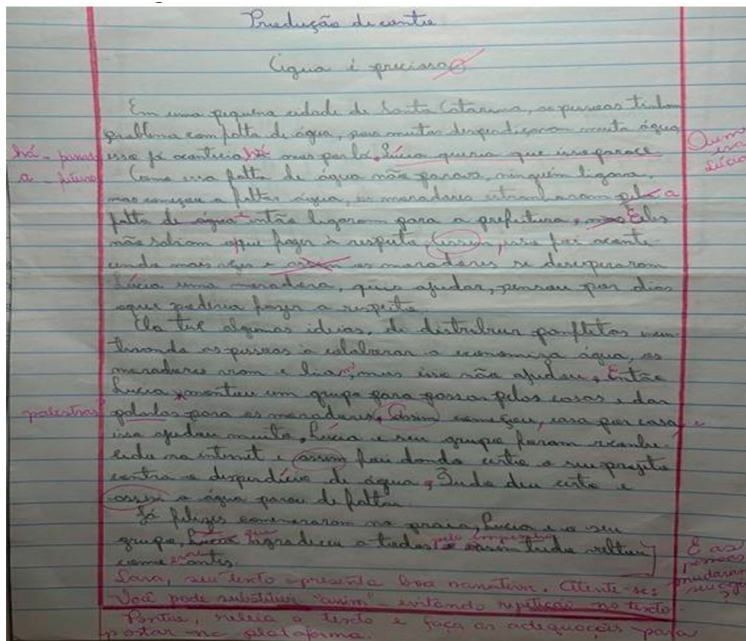 Produção de conto
Água é precioso
Em uma pequena cidade de Santa Catarina, as pessoas tinham
problema com falta de água, pois muitos desperdiçavam muita água
isso já acontecia há mas por lá. Lúcia queria que isso parace
Como essa falta de água não parava, ninguém ligava,
mas começou a faltar água, os moradores estranharam pela a
falta de água então ligaram para a prefeitura, mas Eles
não sabiam oque fazer à respeito, assim, isso foi aconte
cendo mais vezes e assim os moradores se desesperaram
Lúcia uma moradora, quis ajudar, pensou por dias
oque poderia fazer a respeito.
Ela teve algumas ideias, de distribuir panfletos
as pessoas à colaborar a economiza água, os
moradores viam e liam, mas isso não ajudou. Então
Lucia montou um grupo para passar pelas casas e dar
para os moradores. Assim começou, casa por casa e
isso ajudou muito, Lúcia e seu grupo foram reconhe
cido na internet e assim foi dando certo o seu projeto
contra o desperdício de água. Tudo deu certo e
assim a água parou de faltar.
Já felizes comemoraram na praia, Lucia e o seu
grupo, Lucas que agradeceu a todos pelo empenho assim tudo voltou
como era antes.
há - passado
a - futuro
palestras
Quem
era
Lúcia
E as
pessoas
mudaram
seu
Lara, seu texto apresenta boa narrativa. Atente-se:
Você pode substituir "assim" - evitando repetição no texto
Pontue, releia o texto e faça as adequações para
postar na plataforma.